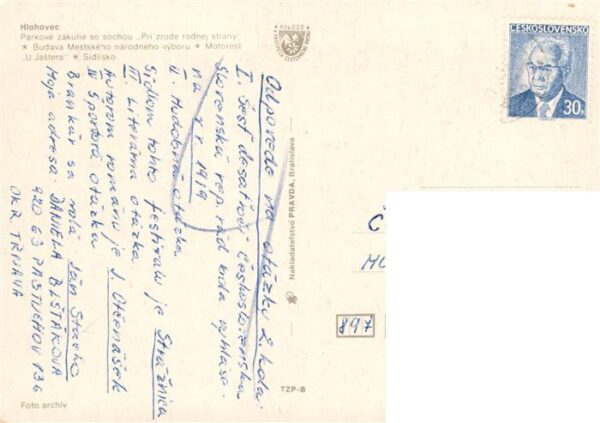 Hlohovec
Parkové zákutie so sochou „Pri zrode rodnej strany"
★ Budova Mestského národného výboru ★ Motorest
„U Jaštera" ★ Sídlisko
Odpovede na otázky 2. kola:
I. Šesť desaťročí Československa
Slovenská rep. rád bola vyhláse-
na r. 1919
II. Hudobná otázka.
Sídlom tohto festivalu je Strážnica
III. Literárna otázka.
Autorom románu je J. Otčenášek
IV Športová otázka
Brankár sa volá Ján
Moja adresa: DANIELA
920 63 PASTUCHOV 136
OKR. TRNAVA
Foto archív
Nakladateľstvo PRAVDA, Bratislava
TZP-B
ČESKOSLOVENSKO
30 h
Č
897